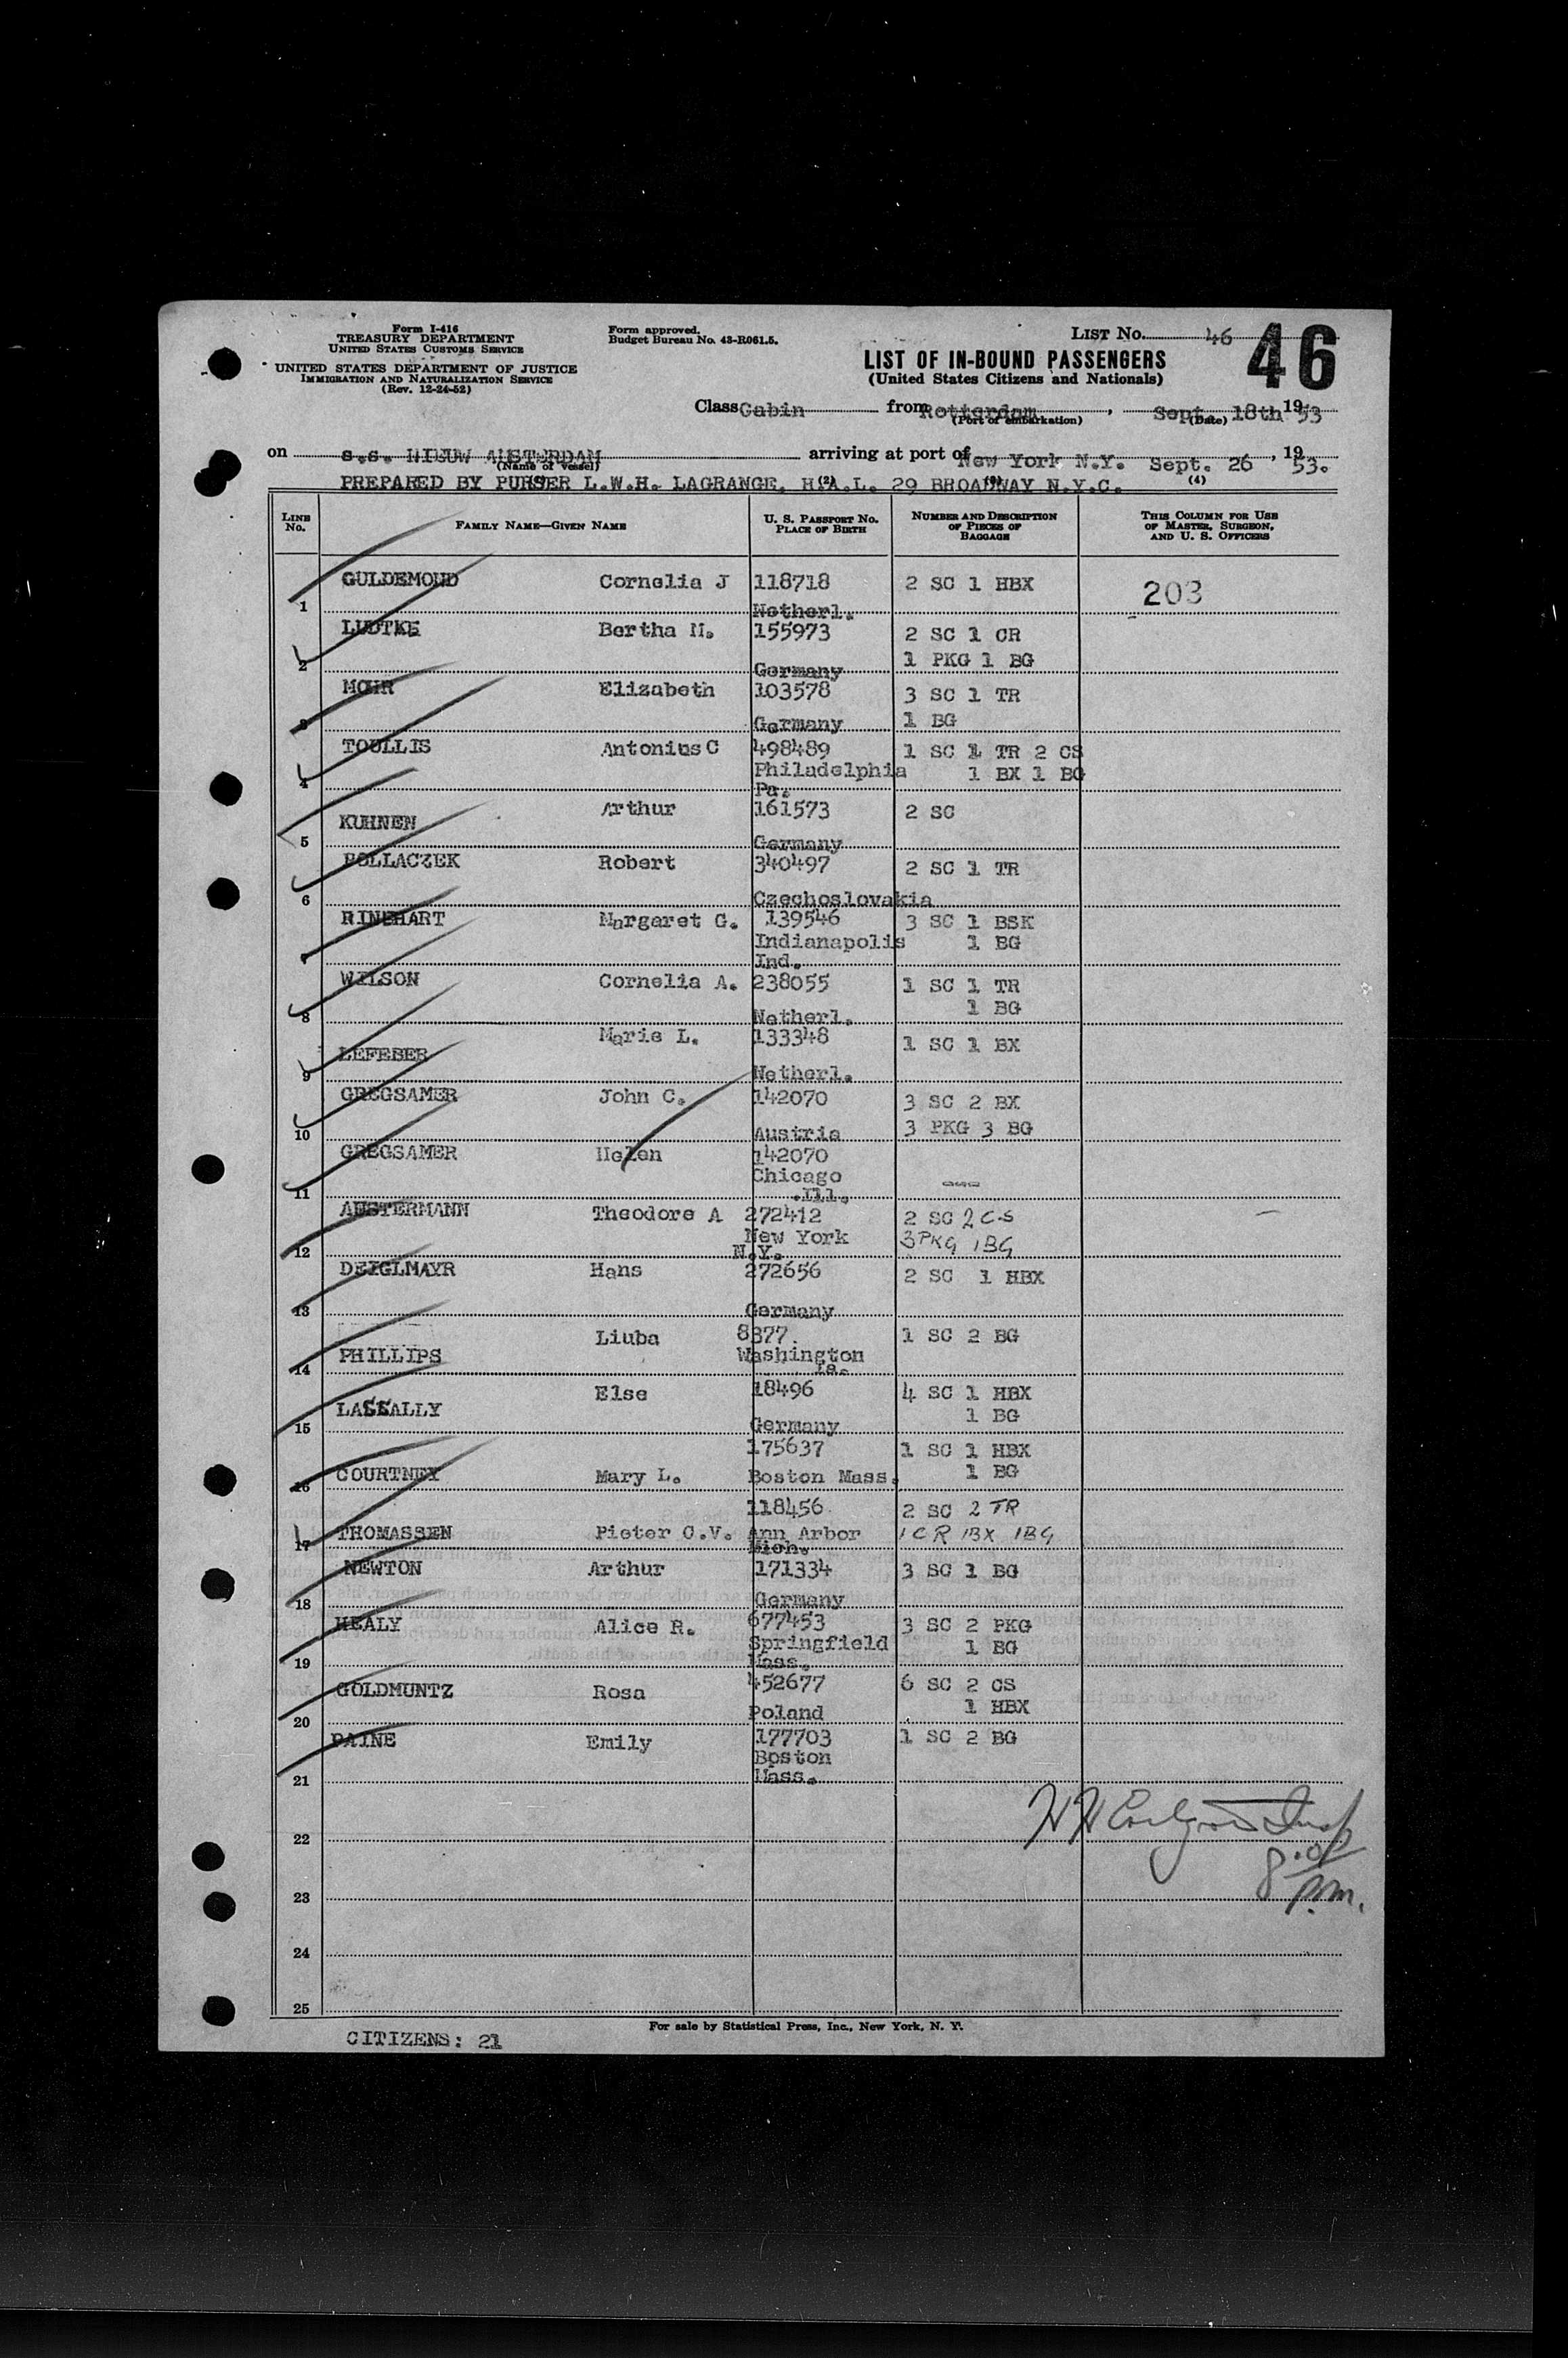 Form I-416
TREASURY DEPARTMENT
UNITED STATES CUSTOMS SERVICE
UNITED STATES DEPARTMENT OF JUSTICE
IMMIGRATION AND NATURALIZATION SERVICE
(Rev. 12-24-52)
Form approved.
Budget Bureau No. 43-R061.5.
LIST NO. 46
46
LIST OF IN-BOUND PASSENGERS
(United States Citizens and Nationals)
Class Cabin from Rotterdam, Sept. 18th 19 53
(Port of embarkation) (Date)
on s.s. NIEUW AMSTERDAM arriving at port of New York N.Y. Sept. 26, 19 53.
(Name of vessel)
PREPARED BY PURSER L.W.H. LAGRANGE, H.A.L. 29 BROADWAY N.Y.C.
(2) (4)
LINE No. FAMILY NAME—GIVEN NAME U. S. PASSPORT NO. PLACE OF BIRTH NUMBER AND DESCRIPTION OF PIECES OF BAGGAGE THIS COLUMN FOR USE OF MASTER, SURGEON, AND U. S. OFFICERS
1 GULDEMOND Cornelia J 118718 2 SC 1 HBX 203
Netherl.
2 LUDTKE Bertha M. 155973 2 SC 1 CR
Germany 1 PKG 1 BG
3 MOHR Elizabeth 103578 3 SC 1 TR
Germany 1 BG
4 TOULLIS Antonius C 498489 1 SC 1 TR 2 CS
Philadelphia 1 BX 1 BG
Pa.
5 KUHNEN Arthur 161573 2 SC
Germany
6 POLLACZEK Robert 340497 2 SC 1 TR
Czechoslovakia
RINEHART Margaret G. 139546 3 SC 1 BSK
Indianapolis 1 BG
Ind.
8 WILSON Cornelia A. 238055 1 SC 1 TR
Netherl. 1 BG
9 LEFEBER Marie L. 133348 1 SC 1 BX
Netherl.
10 GREGSAMER John C. 142070 3 SC 2 BX
Austria 3 PKG 3 BG
11 GREGSAMER Helen 142070
Chicago ---
.Ill.
12 AUSTERMANN Theodore A 272412 2 SC 2 CS
New York 3 PKG 1 BG
N.Y.
13 DEIGLMAYR Hans 272656 2 SC 1 HBX
Germany
14 PHILLIPS Liuba 8377. 1 SC 2 BG
Washington
Ia.
15 LASSALLY Else 18496 4 SC 1 HBX
Germany 1 BG
16 COURTNEY Mary L. 175637 1 SC 1 HBX
Boston Mass. 1 BG
17 THOMASSEN Pieter C.V. 118456 2 SC 2 TR
Ann Arbor 1 CR 1BX 1BG
Mich.
18 NEWTON Arthur 171334 3 SC 1 BG
Germany
19 HEALY Alice R. 677453 3 SC 2 PKG
Springfield 1 BG
Mass.
20 GOLDMUNTZ Rosa 452677 6 SC 2 CS
Poland 1 HBX
21 PAINE Emily 177703 1 SC 2 BG
Boston
Mass.
22
8:00
p.m.
23
24
25
For sale by Statistical Press, Inc., New York, N. Y.
CITIZENS: 21